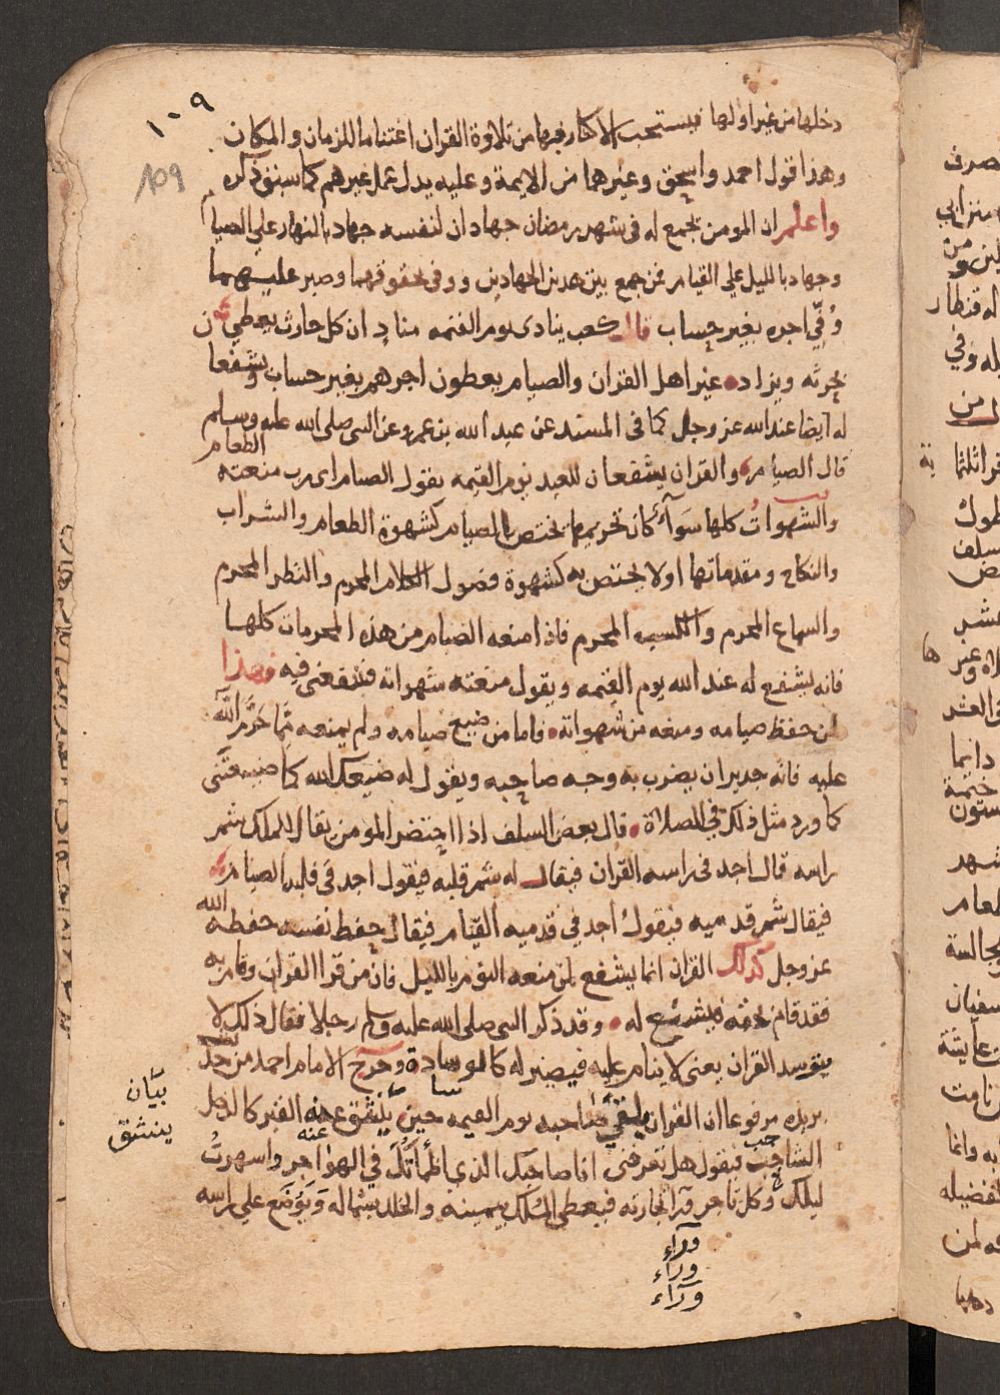 ١٠٩
109
دخلها من غير اهلها فيستحب الاكثار فيها من تلاوة القران اغتناما للزمان والمكان
وهذا قول احمد واسحق وغيرهما من الايمة وعليه يدل عمل غيرهم كما سبق ذكره
واعلم ان المومن يجتمع له في شهر رمضان جهادان لنفسه جهاد بالنهار علي الصيام
وجهاد بالليل علي القيام فمن جمع بين هذين الجهادين ووفي بحقوقهما وصبر عليهما
وُفّي اجره بغير حساب قال كعب ينادى يوم القيمه مناد ان كل حارث يعطي
بحرثه ويزاد غير اهل القران والصيام يعطون اجرهم بغير حساب ويشفعا
له ايضا عند الله عز وجل كما في المسند عن عبد الله بن عمرو عن النبي صلى الله عليه وسلم
قال الصيام والقران يشفعان للعبد يوم القيمه يقول الصيام اى رب منعته الطعام
والشهوات كلها سوآء كان تحريمها يختص بالصيام كشهوة الطعام والشراب
والنكاح ومقدماتها اولا يختص به كشهوة فضول الكلام المحرم والنظر المحرم
والسماع المحرم والكسب المحرم فاذا منعه الصيام من هذه المحرمات كلها
فانه يشفع له عند الله يوم القيمه ويقول منعته شهواته فشفعني فيه فهذا
لمن حفظ صيامه ومنعه من شهواته فاما من ضيع صيامه ولم يمنعه مما حَرَّم اللَّه
عليه فانه جدير ان يضرب به وجه صاحبه ويقول له ضيعك الله كما ضيعتني
كما ورد مثل ذلك في الصلاة قال بعض السلف اذا احتضر المومن يقال للملك شم
راسه قال اجد في راسه القران فيقال له شم قلبه فيقول اجد في قلبه الصيام
فيقال شم قدميه فيقول اجد في قدميه القيام فيقال حفظ نفسه حفظه الله
عز وجل كذلك القران انما يشفع لمن منعه النوم بالليل فان من قرا القران وقام به
فقد قام بحقه فيشفع له وقد ذكر النبي صلى الله عليه وسلم رجلا فقال ذلك لا
يتوسد القران يعنى لا ينام عليه فيصير له كالوسادة وخرج الامام احمد من حديث
بريده مرفوعا ان القران يلقي صاحبه يوم القيمه حين يَنْشق عنه القبر كالرجل
الشاحب فيقول هل تعرفني انا صاحبك الذي اظمأتُكَ في الهواجر واسهرتُ
ليلك وكل تاجر ورآ تجارته فيعطى المُلك بيمينه والخلد بشماله وَيُوضَع علي راسه
ورآء
ورآء
ورآء
بيَان
ينشق